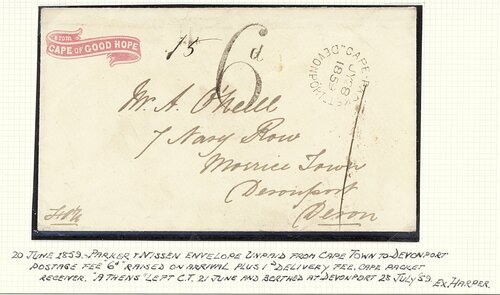 From
CAPE OF GOOD HOPE
15
6d
DEVONPORT CAPE-PA
JY 28
1859
Mr. A. O'Neill
7 Navy Row
Morrice Town
Devonport
Devon
20 JUNE 1859. PARKER & NISSEN ENVELOPE UNPAID FROM CAPE TOWN TO DEVONPORT
POSTAGE FEE 6d RAISED ON ARRIVAL PLUS 1d DELIVERY FEE. CAPE PACKET
RECEIVER. "ATHENS" LEFT C.T. 21 JUNE AND BERTHED AT DEVONPORT 28 JULY 59. EX. HARPER